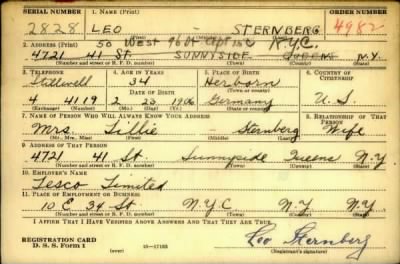 SERIAL NUMBER 1. NAME (Print) ORDER NUMBER
2828 LEO STERNBERG 4982
(First) (Middle) (Last)
50 West 96 St Apt 15C N.Y.C.
2. ADDRESS (Print)
4721 41 St. SUNNYSIDE QUEENS N.Y.
(Number and street or R. F. D. number) (Town) (County) (State)
3. TELEPHONE 4. AGE IN YEARS 5. PLACE OF BIRTH 6. COUNTRY OF CITIZENSHIP
Stillwell 34 Herborn
(Town or county)
DATE OF BIRTH
4 4119 2 23 1906 Germany U.S.
(Exchange) (Number) (Mo.) (Day) (Yr.) (State or country)
7. NAME OF PERSON WHO WILL ALWAYS KNOW YOUR ADDRESS 8. RELATIONSHIP OF THAT PERSON
Mrs. Tillie Sternberg Wife
(Mr., Mrs., Miss) (First) (Middle) (Last)
9. ADDRESS OF THAT PERSON
4721 41 St. Sunnyside Queens N.Y
(Number and street or R. F. D. number) (Town) (County) (State)
10. EMPLOYER'S NAME
Tesco Limited
11. PLACE OF EMPLOYMENT OR BUSINESS
10 E 34 St N.Y.C N.Y N.Y
(Number and street or R. F. D. number) (Town) (County) (State)
I AFFIRM THAT I HAVE VERIFIED ABOVE ANSWERS AND THAT THEY ARE TRUE.
REGISTRATION CARD
D. S. S. Form 1 (over) 16—17105 Leo Sternberg
(Registrant's signature)